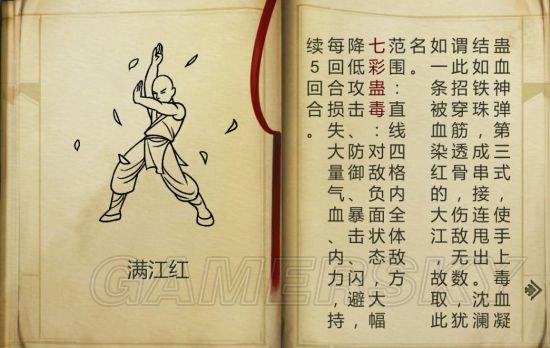 满江红
蛊血神弹第三式，使手上毒血凝
结如铁珠，成串接连甩出。沈澜
谓此招穿筋透骨，伤敌无数，犹
如一条被染红的大江，故取此
名。
范围：直线四格内全体敌方
七彩蛊毒：负面状态，大幅
降低攻击、防御、暴击、闪避，
每回合损失大量气血、内力，持
续5回合。
GAMERSKY